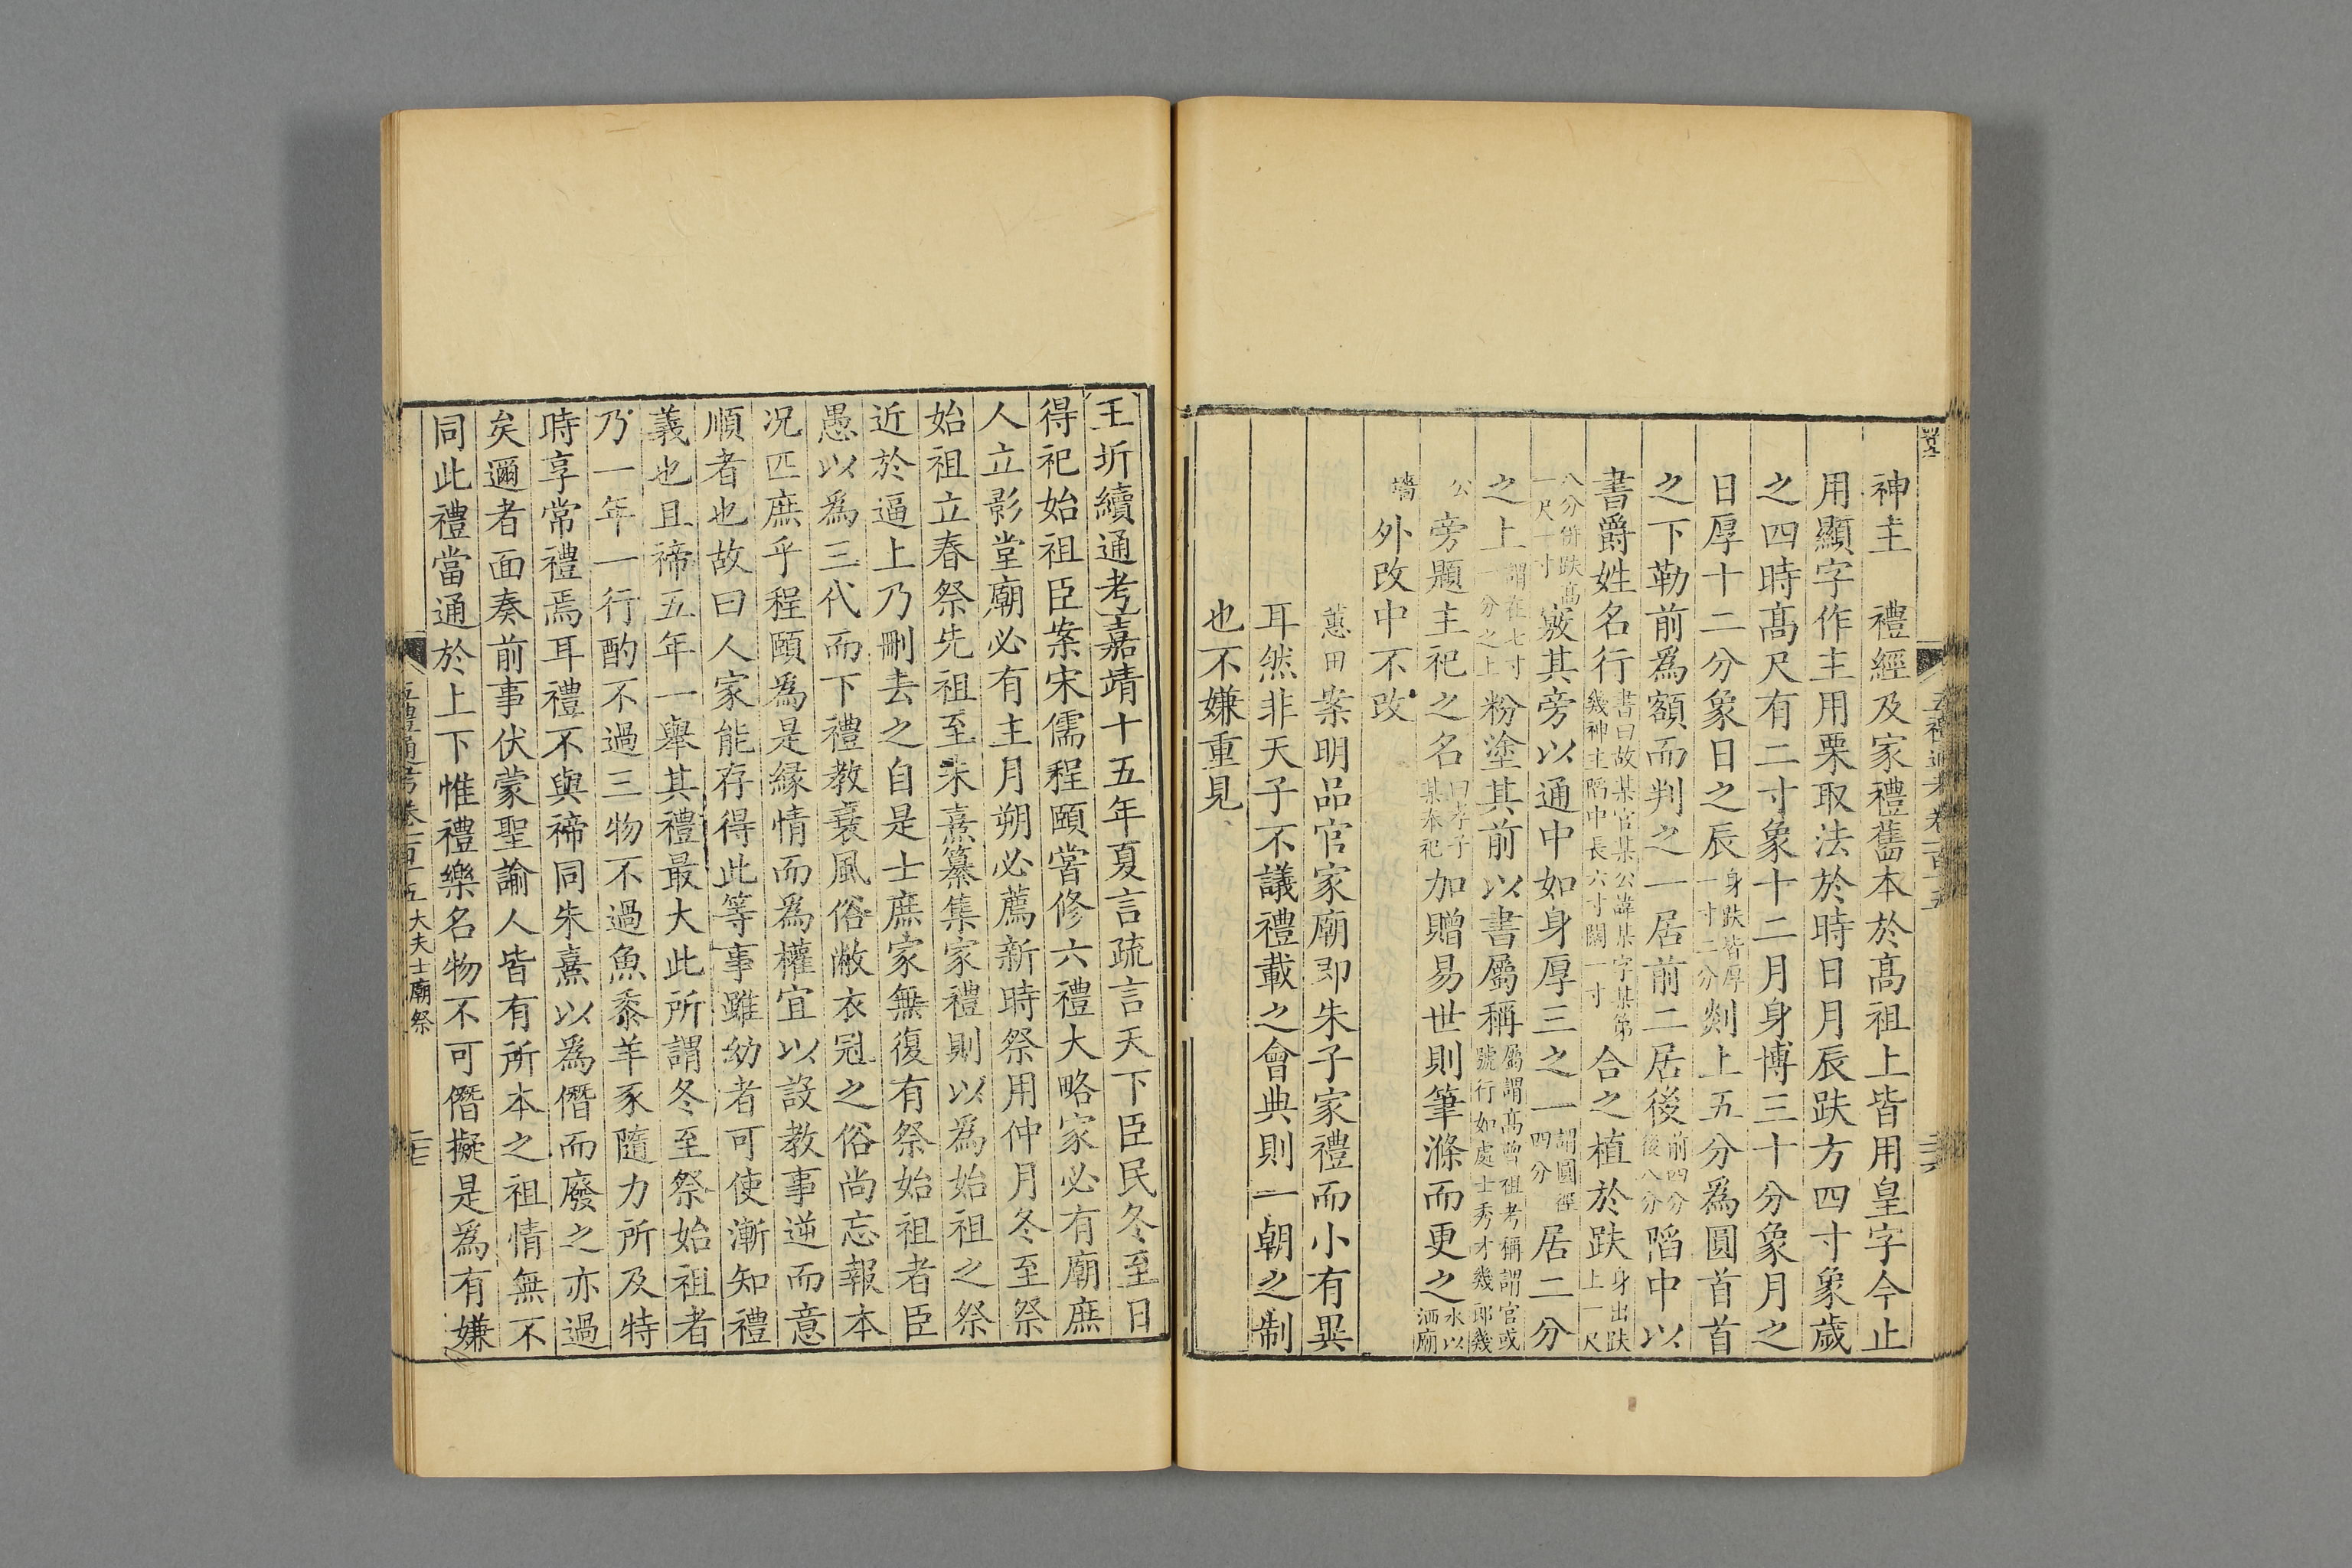 神主　禮經及家禮舊本於髙祖上皆用皇字今止
用顯字作主用栗取法於時日月辰趺方四寸象歲
之四時髙尺有二寸象十二月身博三十分象月之
日厚十二分象日之辰身趺皆厚一寸二分剡上五分爲圓首首
之下勒前爲額而判之一居前二居後前四分後八分䧟中以
書爵姓名行書曰故某官某公諱某字某第幾神主䧟中長六寸闊一寸合之植於趺身出趺上一尺
八分併趺髙一尺二寸竅其旁以通中如身厚三之一謂圓徑四分居二分
之上謂在七寸二分之上粉塗其前以書屬稱屬謂髙曾祖考稱謂官或號行如處士秀才幾郎幾
公旁題主祀之名曰孝子某奉祀加贈易世則筆滌而更之水以洒廟
墻外改中不改
蕙田案明品官家廟即朱子家禮而小有異
耳然非天子不議禮載之會典則一朝之制
也不嫌重見
五禮通考卷一百十五
二十六
王圻續通考嘉靖十五年夏言疏言天下臣民冬至日
得祀始祖臣案宋儒程頤嘗修六禮大略家必有廟庶
人立影堂廟必有主月朔必薦新時祭用仲月冬至祭
始祖立春祭先祖至朱熹纂集家禮則以爲始祖之祭
近於逼上乃刪去之自是士庶家無復有祭始祖者臣
愚以爲三代而下禮教衰風俗敝衣冠之俗尚忘報本
况匹庶乎程頤爲是縁情而爲權宜以設教事逆而意
順者也故曰人家能存得此等事雖幼者可使漸知禮
義也且禘五年一舉其禮最大此所謂冬至祭始祖者
乃一年一行酌不過三物不過魚黍羊豕隨力所及特
時享常禮焉耳禮不與禘同朱熹以爲僭而廢之亦過
矣邇者面奏前事伏蒙聖諭人皆有所本之祖情無不
同此禮當通於上下惟禮樂名物不可僭擬是爲有嫌
五禮通考卷一百十五 大夫士廟祭
二十七